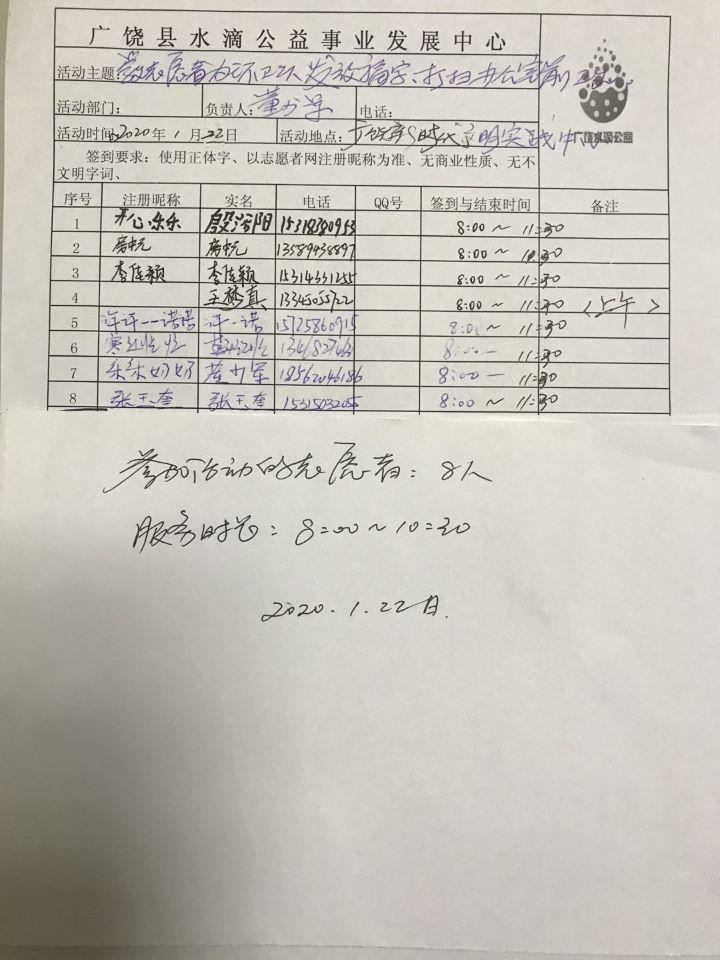 广饶县水滴公益事业发展中心
活动主题: 志愿者为环卫工人发放福字、打扫办公室
活动部门: 负责人: 电话:
活动时间: 2020年1月22日 活动地点: 广饶新时代文明实践中心
广饶水滴公益
签到要求：使用正体字、以志愿者网注册昵称为准、无商业性质、无不
文明字词、
序号 注册昵称 实名 电话 QQ号 签到与结束时间 备注
1 开心乐乐 殷洺阳 15318380953 8:00～11:30
2 13589438897 8:00～11:30
3 李佳颖 李佳颖 15314331255 8:00～11:30
4 王梦真 13345055722 8:00～11:30 <上午>
5 许许一一诺诺 许一诺 15725860915 8:00～11:30
6 8:00— 11:30
7 18562046186 8:00— 11:30
8 张玉奎 张玉奎 15315032055 8:00～11:30
参加活动的志愿者：8人
服务时长：8:00～10:30
2020.1.22日.